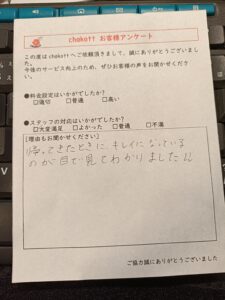 chokott お客様アンケート
この度は chokott へご依頼頂きまして、誠にありがとうございました。
今後のサービス向上のため、ぜひお客様の声をお聞かせください。
●料金設定はいかがでしたか?
□適切 □普通 □高い
●スタッフの対応はいかがでしたか?
□大変満足 □よかった □普通 □不満
[理由もお聞かせください]
帰ってきたときに、キレイになっている
のが目で見てわかりました!!
ご協力誠にありがとうございました